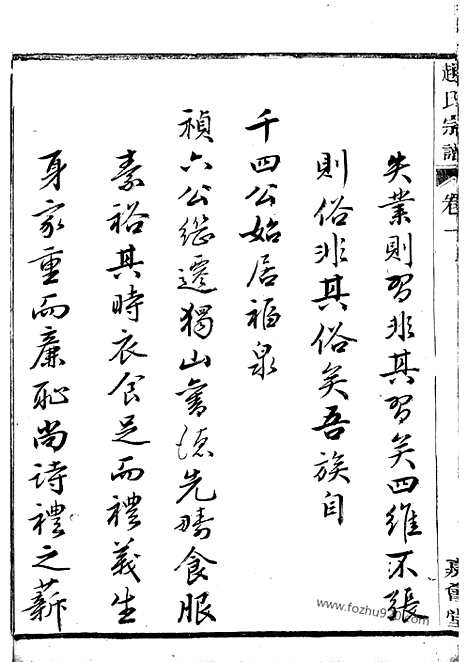 趙氏宗譜
卷一
嘉會堂
失業則習非其習矣四維不張
則俗非其俗矣吾族自
千四公始居福泉
禎六公繼遷獨山舊德先疇食服
素裕其時衣食足而禮義生
身家重而廉恥尚詩禮之薪
www.fozhu920.com